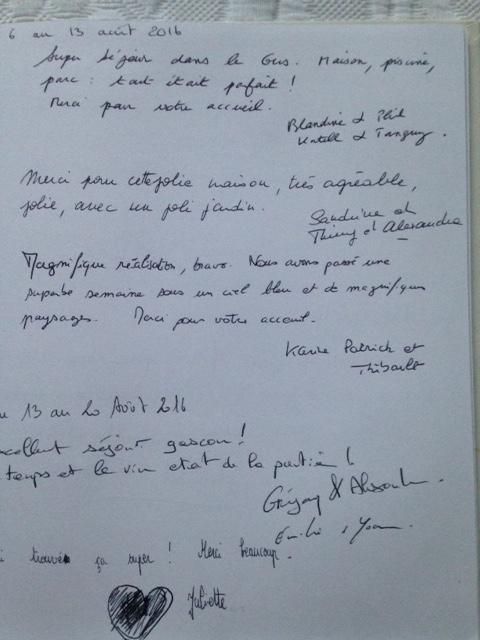 6 au 13 août 2016
Super séjour dans le Gers. Maison, piscine,
parc : tout était parfait !
Merci pour votre accueil.
Blandine et Phil
et Tanguy.
Merci pour cette jolie maison, très agréable,
jolie, avec un joli jardin.
Sandrine et
Thierry et Alexandra
Magnifique réalisation, bravo. Nous avons passé une
superbe semaine sous un ciel bleu et de magnifiques
paysages. Merci pour votre accueil.
Karine Patrick et
Thibault
13 au 20 Août 2016
excellent séjour gascon !
temps et le vin etait de la partie !
Grégory &
Emilie
trouvé ça super ! Merci beaucoup.
Juliette